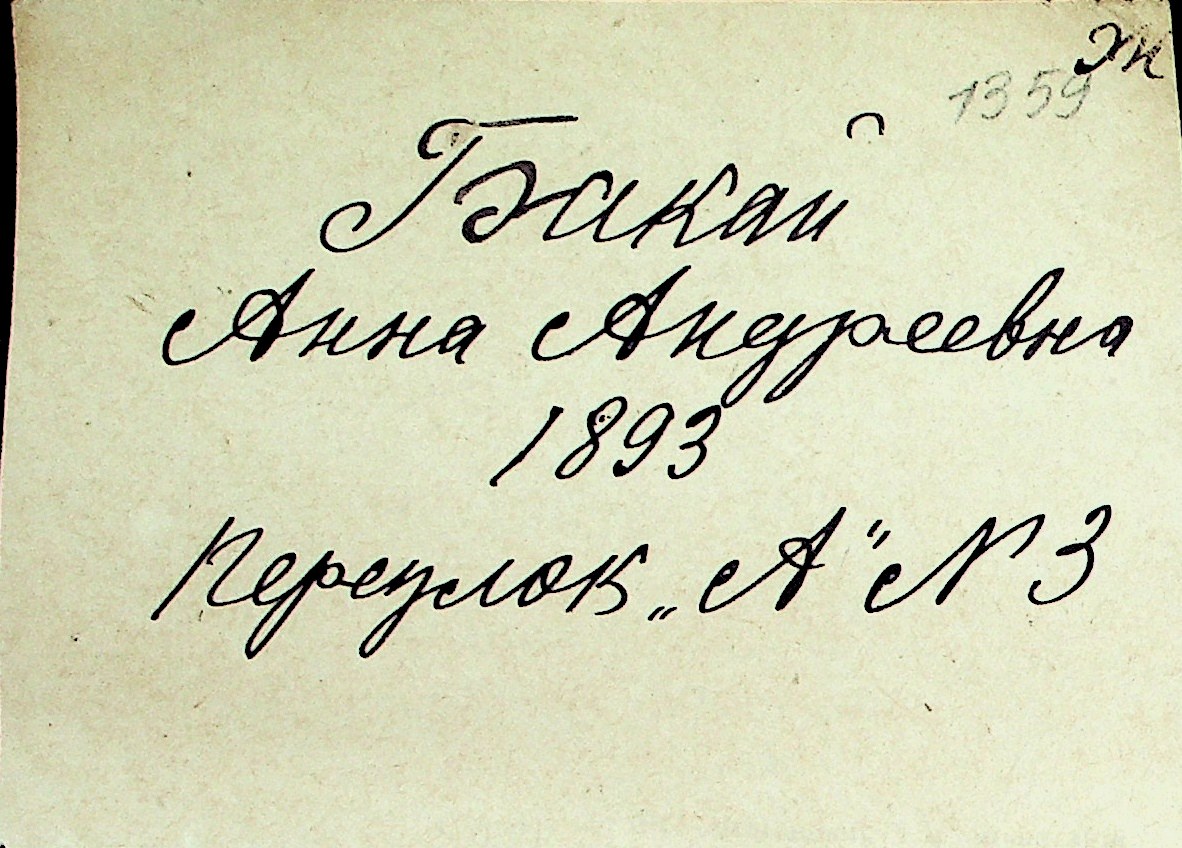 1359
Бакай
Анна Андреевна
1893
Переулок „А" № 3